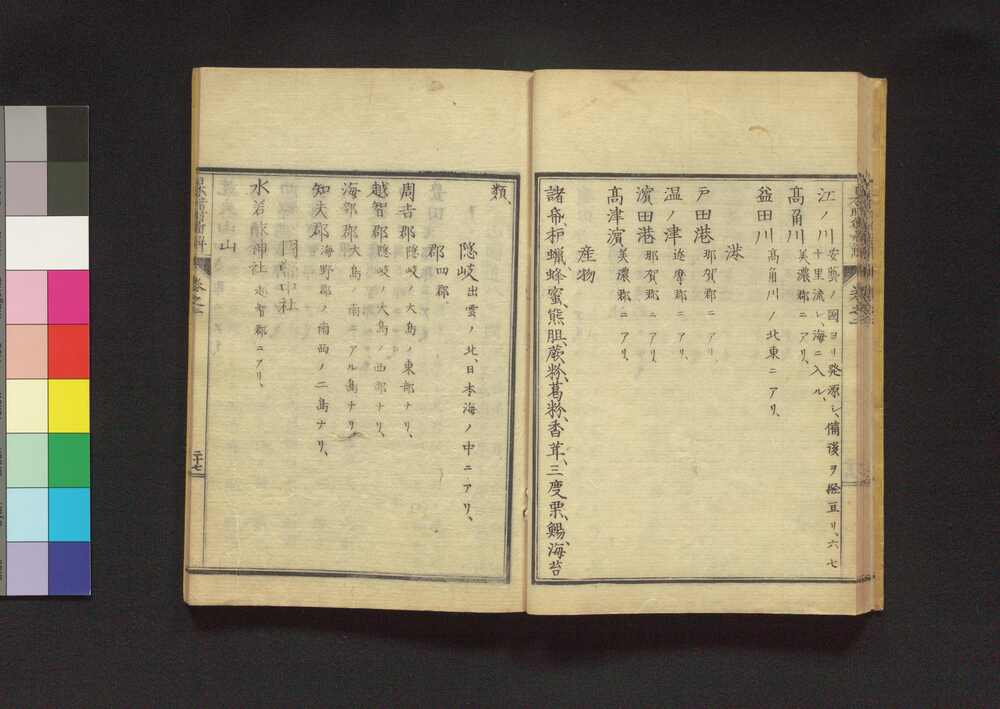 江ノ川 安藝ノ國ヨリ発源シ、備後ヲ経亘リ、六七
十里流レ、海ニ入ル、
髙角川 美濃郡ニアリ、
益田川 髙角川ノ北東ニアリ、
港
戸田港 那賀郡ニアリ、
温ノ津 迩摩郡ニアリ、
濵田港 那賀郡ニアリ、
髙津濵 美濃郡ニアリ、
産物
蠟、蜂蜜、熊胆、蕨粉、葛粉、香茸、三度栗、鰑、海苔
類、
隠岐 出雲ノ北、日本海ノ中ニアリ、
郡四郡、
周吉郡 隠岐ノ大島ノ東部ナリ、
越智郡 隠岐ノ大島ノ西部ナリ、
海部郡 大島ノ南ニアル島ナリ、
知夫郡 海野郡ノ南西ノ二島ナリ、
社
水若酢神社 越智郡ニアリ、
山
二十七